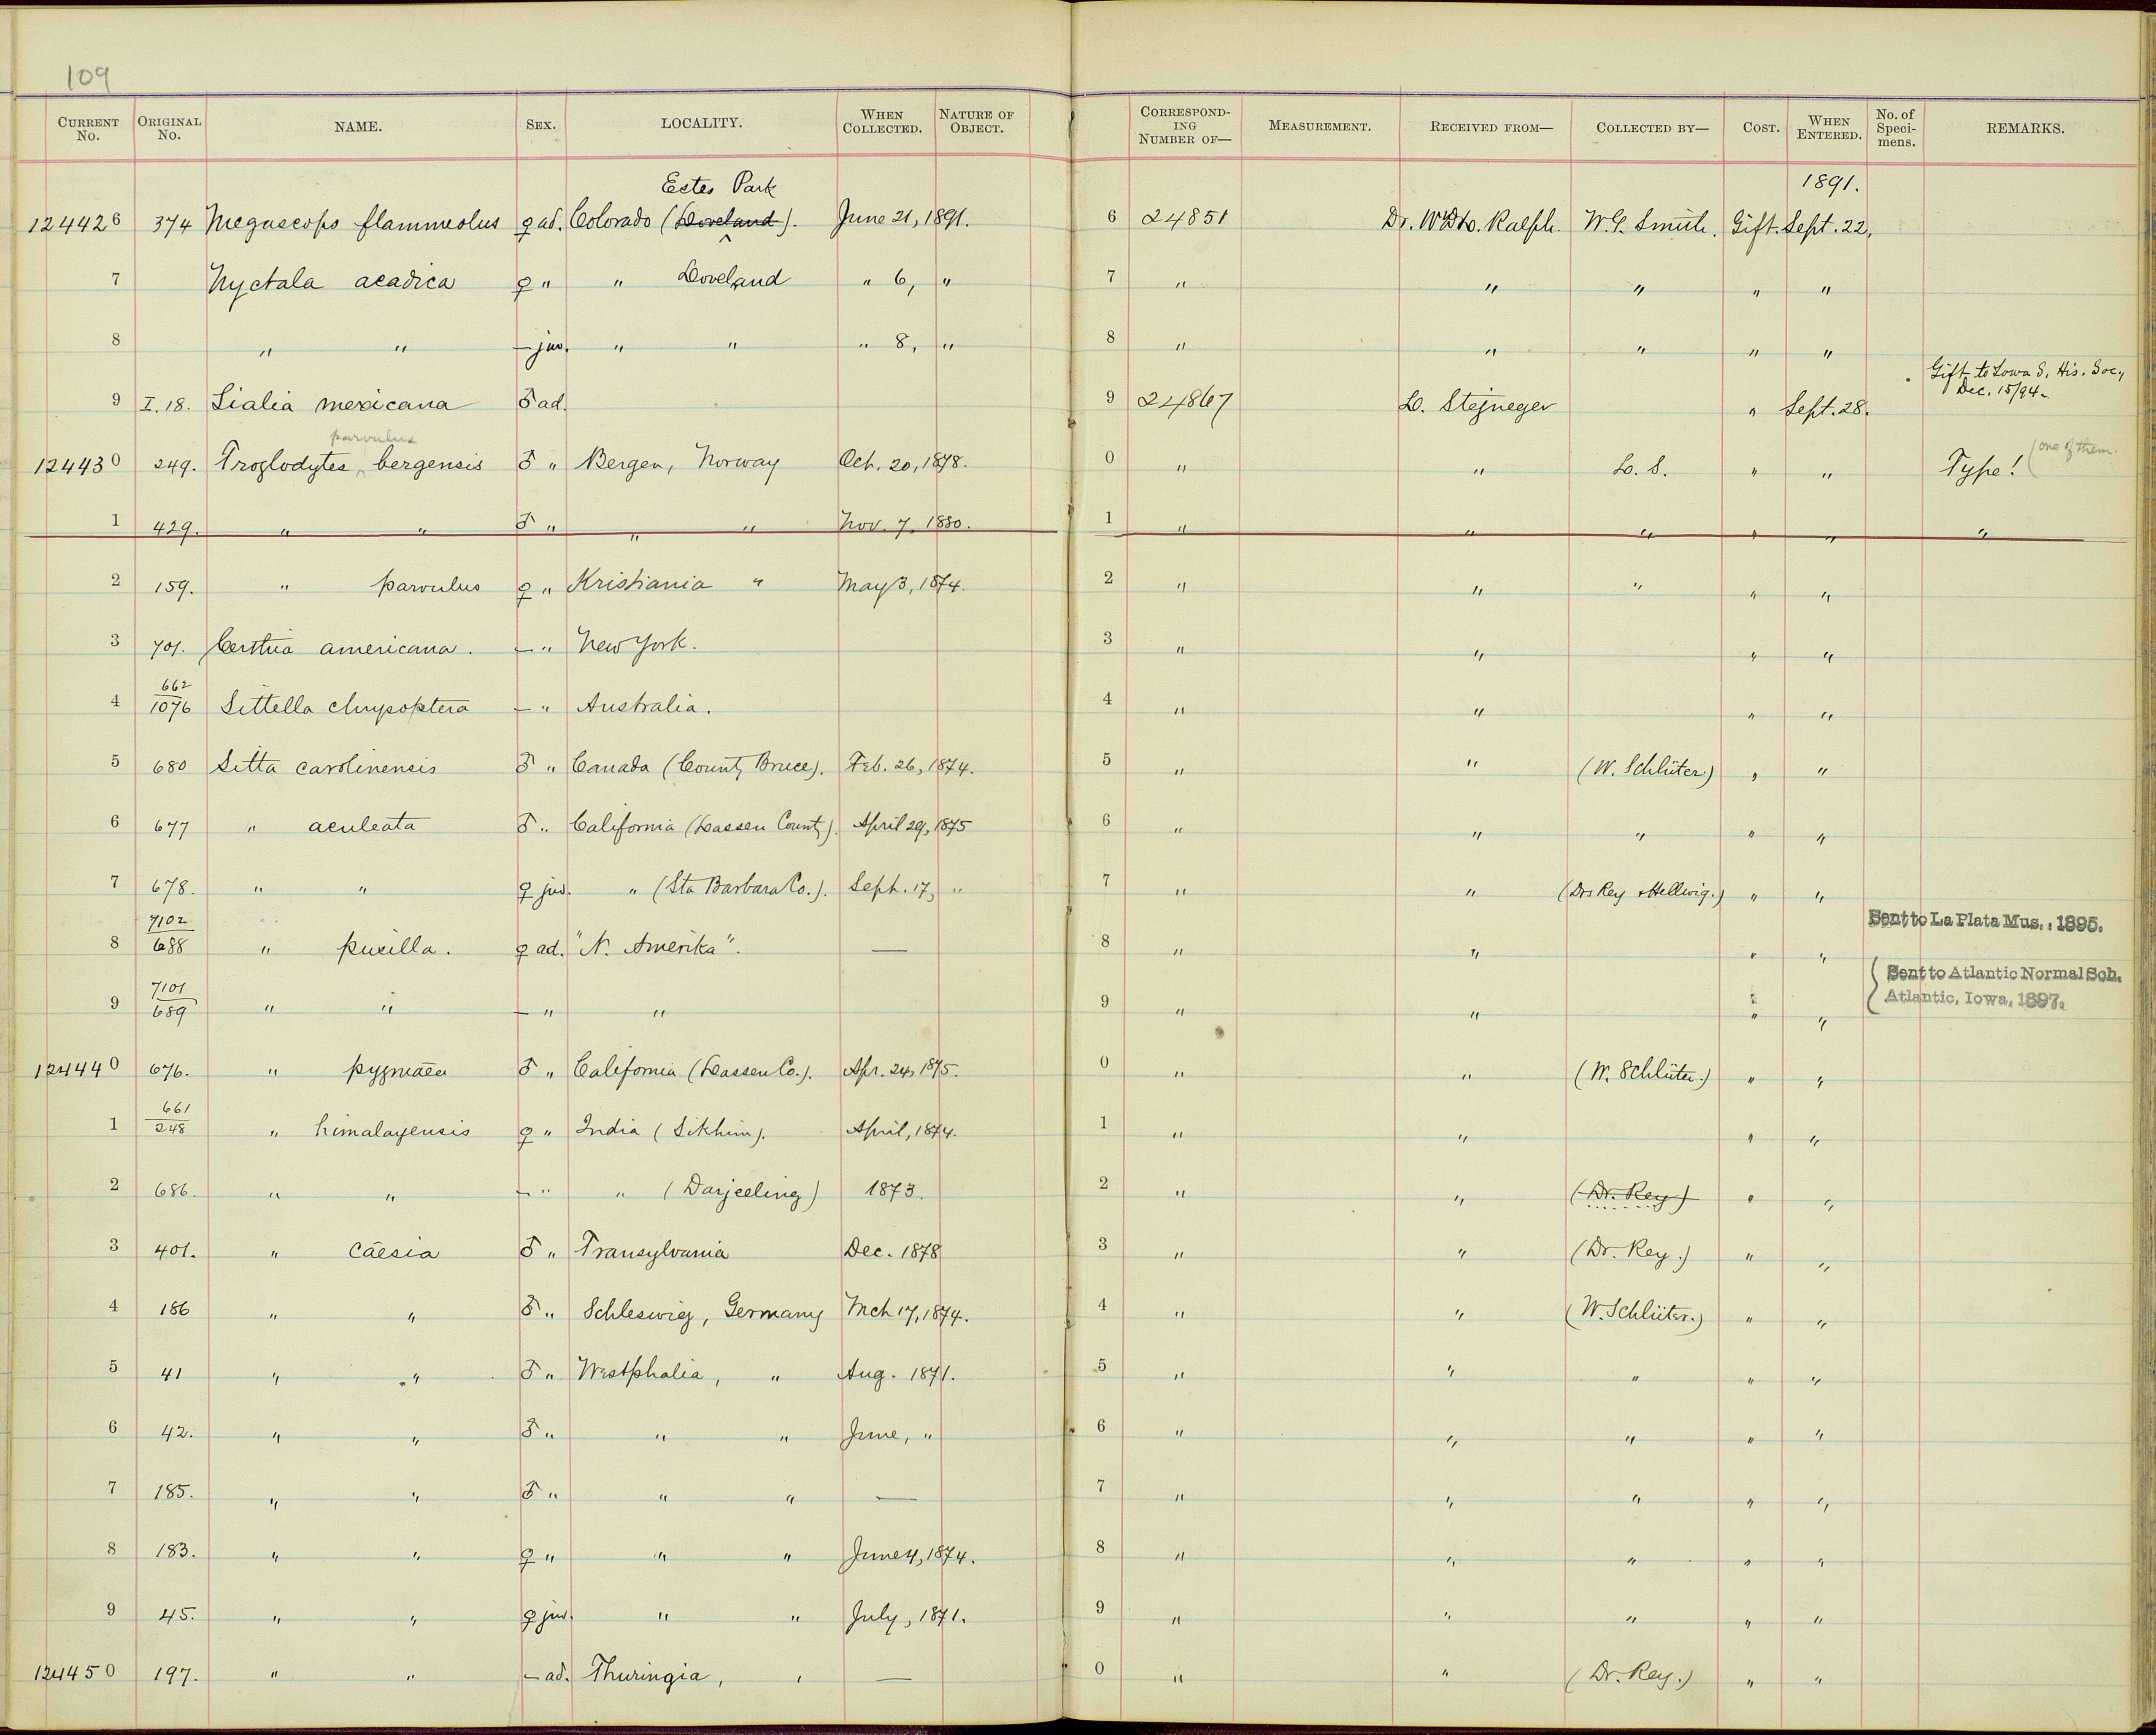 109
CURRENT No. ORIGINAL No. NAME. SEX. LOCALITY. WHEN COLLECTED. NATURE OF OBJECT. CORRESPOND-ING NUMBER OF— MEASUREMENT. RECEIVED FROM— COLLECTED BY— COST. WHEN ENTERED. No. of Speci-mens. REMARKS.
Estes Park 1891.
124426 374 Megascops flammeolus ♀ ad. Colorado (Loveland). June 21, 1891. 6 24851 Dr. Wm L. Ralph. W. G. Smith. Gift. Sept. 22,
7 Nyctala acadica ♀ " " Loveland " 6, " 7 " " " " "
8 " " — juv. " " " 8, " 8 " " " " "
Gift to Iowa S. His. Soc., Dec. 15/94.
9 I. 18. Sialia mexicana ♂ ad. 9 24867 L. Stejneger " Sept. 28.
parvulus (one of them.
124430 249. Troglodytes ‸ bergensis ♂ " Bergen, Norway Oct. 20, 1878. 0 " " L. S. " " Type!
1 429. " " ♂ " " " Nov. 7, 1880. 1 " " " " " "
2 159. " parvulus ♀ " Kristiania " May 3, 1874. 2 " " " " "
3 701. Certhia americana. — " New York. 3 " " " "
662
4 1076 Sittella chrysoptera — " Australia. 4 " " " "
5 680 Sitta carolinensis ♂ " Canada (County Bruce). Feb. 26, 1874. 5 " " (W. Schlüter.) " "
6 677 " aculeata ♂ " California (Lassen County). April 29, 1875 6 " " " " "
7 678. " " ♀ juv. " (Sta Barbara Co.). Sept. 17, " 7 " " (Drs Rey & Hellwig.) " "
7102 Sent to La Plata Mus.: 1895.
8 688 " pusilla. ♀ ad. "N. Amerika". — 8 " " " "
7101 Sent to Atlantic Normal Sch.
9 689 " " — " " 9 " " " " Atlantic, Iowa, 1897.
124440 676. " pygmaea ♂ " California (Lassen Co.). Apr. 24, 1875. 0 " " (W. Schlüter.) " "
661
1 248 " himalayensis ♀ " India (Sikhim). April, 1874. 1 " " " "
2 686. " " — " " (Darjeeling) 1873. 2 " " (Dr. Rey) " "
3 401. " caesia ♂ " Transylvania Dec. 1878 3 " " (Dr. Rey.) " "
4 186 " " ♂ " Schleswig, Germany Mch 17, 1874. 4 " " (W. Schlüter.) " "
5 41 " " ♂ " Westphalia, " Aug. 1871. 5 " " " " "
6 42. " " ♂ " " " June, " 6 " " " " "
7 185. " " ♂ " " " — 7 " " " " "
8 183. " " ♀ " " " June 4, 1874. 8 " " " " "
9 45. " " ♀ juv. " " July, 1871. 9 " " " " "
124450 197. " " — ad. Thuringia, " — 0 " " (Dr. Rey.) " "